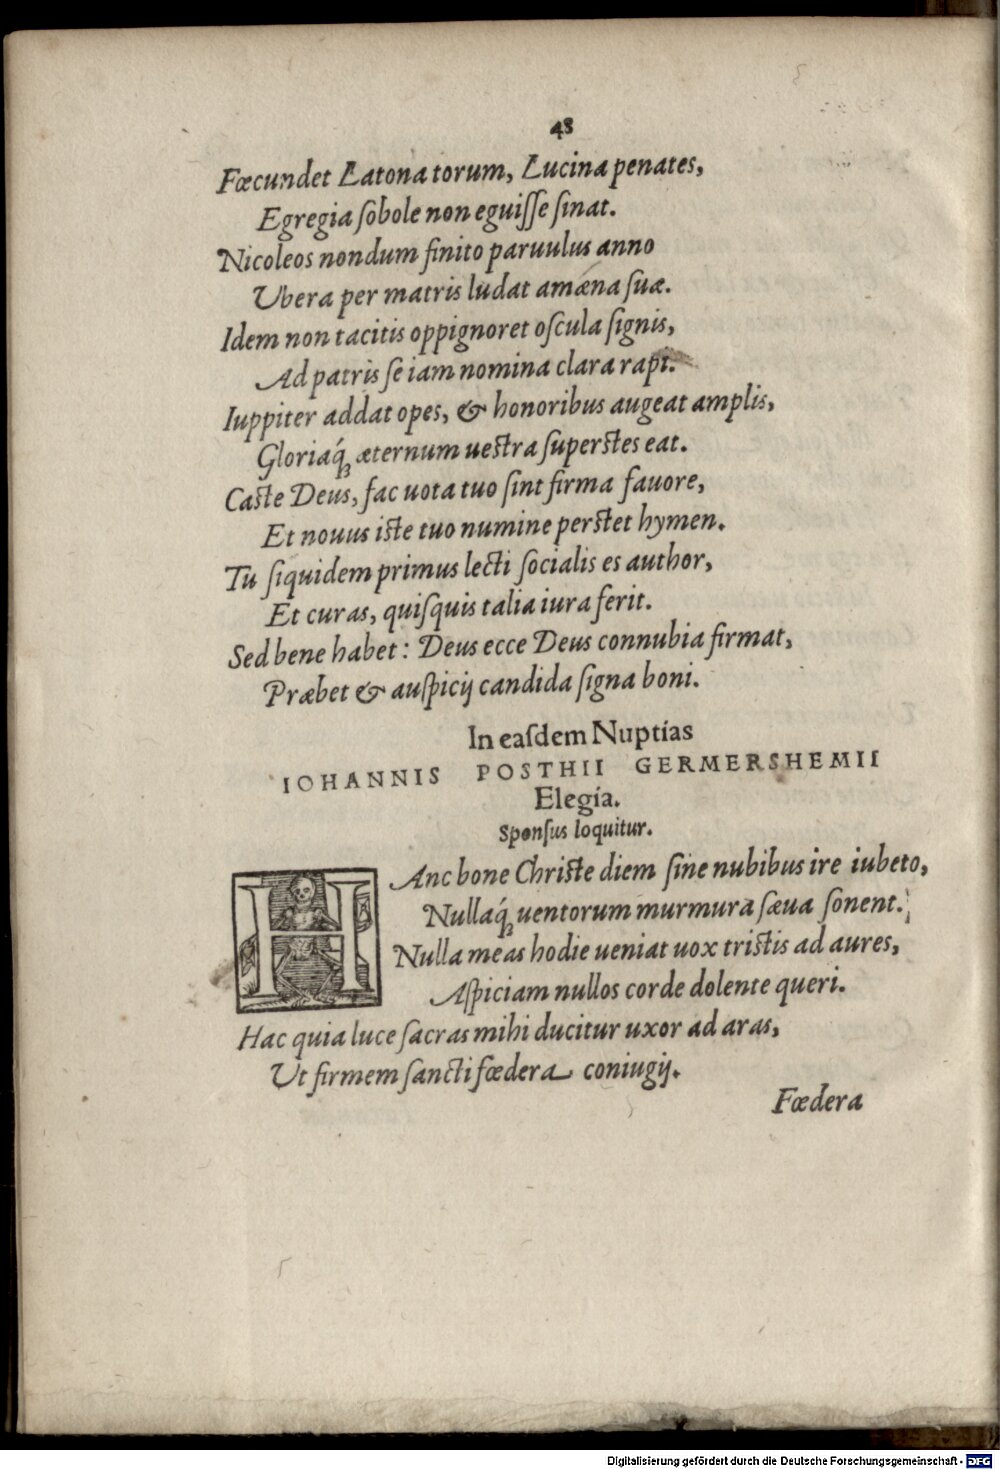 48
Fœcundet Latona torum, Lucina penates,
Egregia ſobole non eguiſſe ſinat.
Nicoleos nondum finito paruulus anno
Ubera per matris ludat amæna ſuæ.
Idem non tacitis oppignoret oſcula ſignis,
Ad patris ſe iam nomina clara rapi.
Iuppiter addat opes, & honoribus augeat amplis,
Gloriaq́ꝫ æternum ueſtra ſuperſtes eat.
Caſte Deus, fac uota tuo ſint firma fauore,
Et nouus iſte tuo numine perſtet hymen.
Tu ſiquidem primus lecti ſocialis es author,
Et curas, quiſquis talia iura ferit.
Sed bene habet: Deus ecce Deus connubia firmat,
Præbet & auſpicij candida ſigna boni.
In eaſdem Nuptias
IOHANNIS POSTHII GERMERSHEMII
Elegia.
Sponſus loquitur.
HAnc bone Chriſte diem ſine nubibus ire iubeto,
Nullaq́ꝫ uentorum murmura ſæua ſonent.
Nulla meas hodie ueniat uox triſtis ad aures,
Aſpiciam nullos corde dolente queri.
Hac quia luce ſacras mihi ducitur uxor ad aras,
Ut firmem ſancti fœdera coniugij.
Fœdera
Digitalisierung gefördert durch die Deutsche Forschungsgemeinschaft - DFG